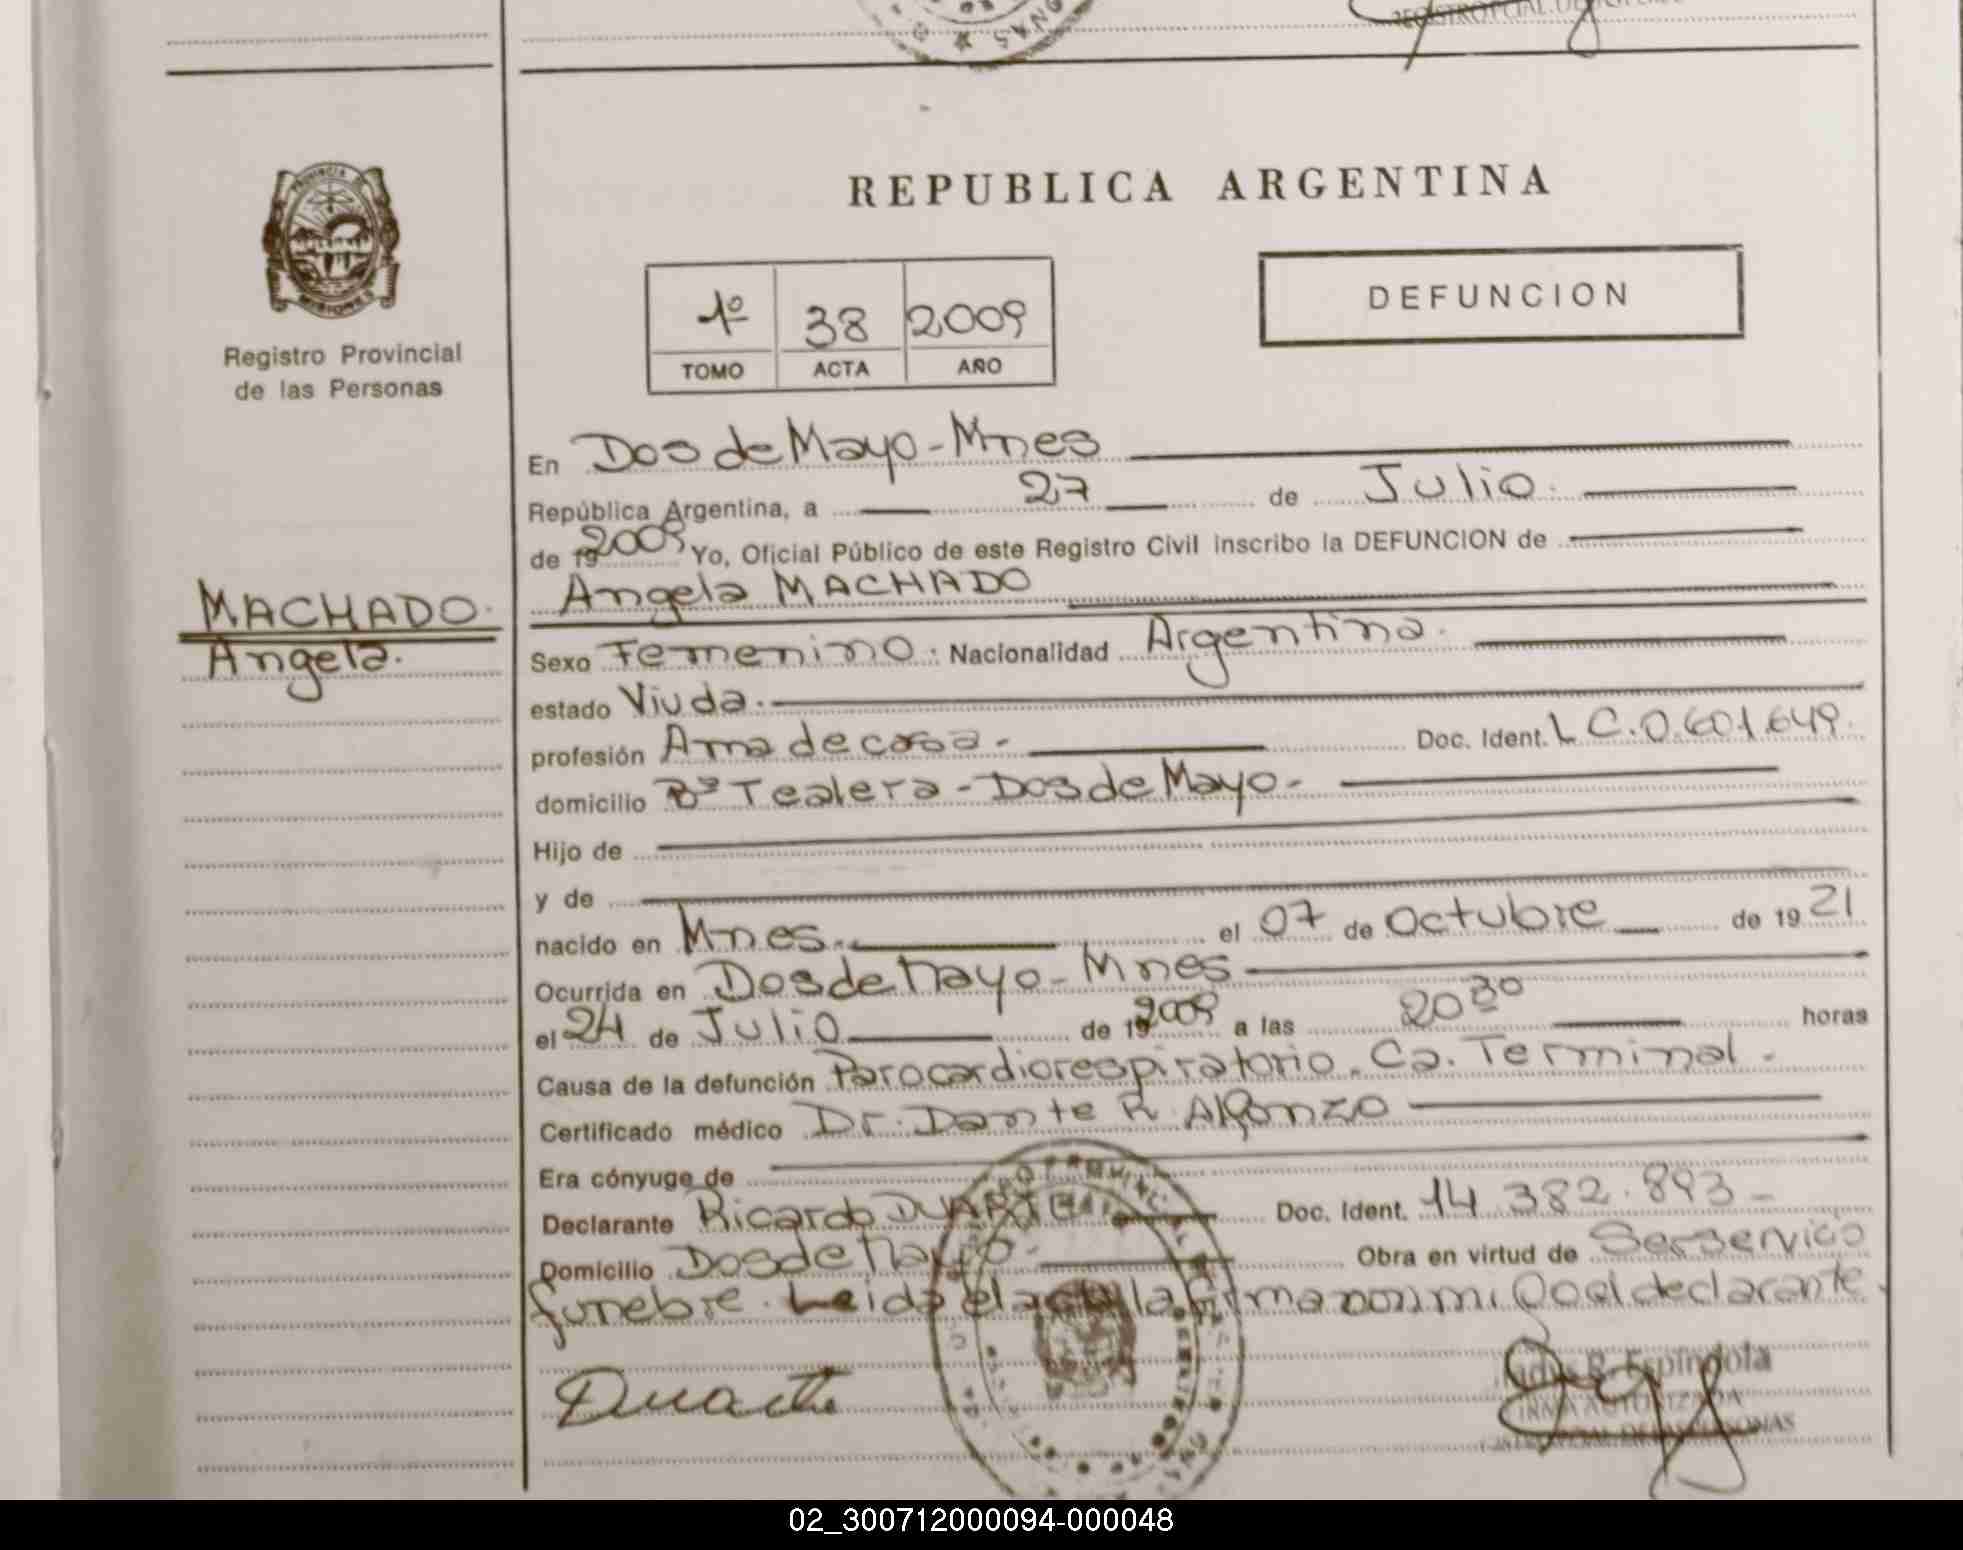 REPUBLICA ARGENTINA
PROVINCIA DE
MISIONES
Registro Provincial
de las Personas
1º 38 2009
TOMO ACTA AÑO
DEFUNCION
En Dos de Mayo - Mnes
República Argentina, a 27 de Julio.
de 19 2009 Yo, Oficial Público de este Registro Civil inscribo la DEFUNCION de
Angela MACHADO
MACHADO.
Angela.
Sexo Femenino. Nacionalidad Argentina.
estado Viuda.
profesión Ama de casa - Doc. Ident. L C. 0.601.649.
domicilio Bº Tealera - Dos de Mayo -
Hijo de
y de
nacido en Mnes. el 07 de Octubre de 19 21
Ocurrida en Dos de Mayo - Mnes
el 24 de Julio de 19 2009 a las 20 30 horas
Causa de la defunción Parocardiorespiratorio. Ca. Terminal -
Certificado médico Dr. Dante R. Alfonzo
Era cónyuge de
Declarante Ricardo DUARTE Doc. Ident. 14.382.893 -
Domicilio Dos de Mayo - Obra en virtud de Ser servicio
funebre. Leida el acta la firman con mi el declarante.
Duarte
R. Espíndola
FIRMA AUTORIZADA
02_300712000094-000048